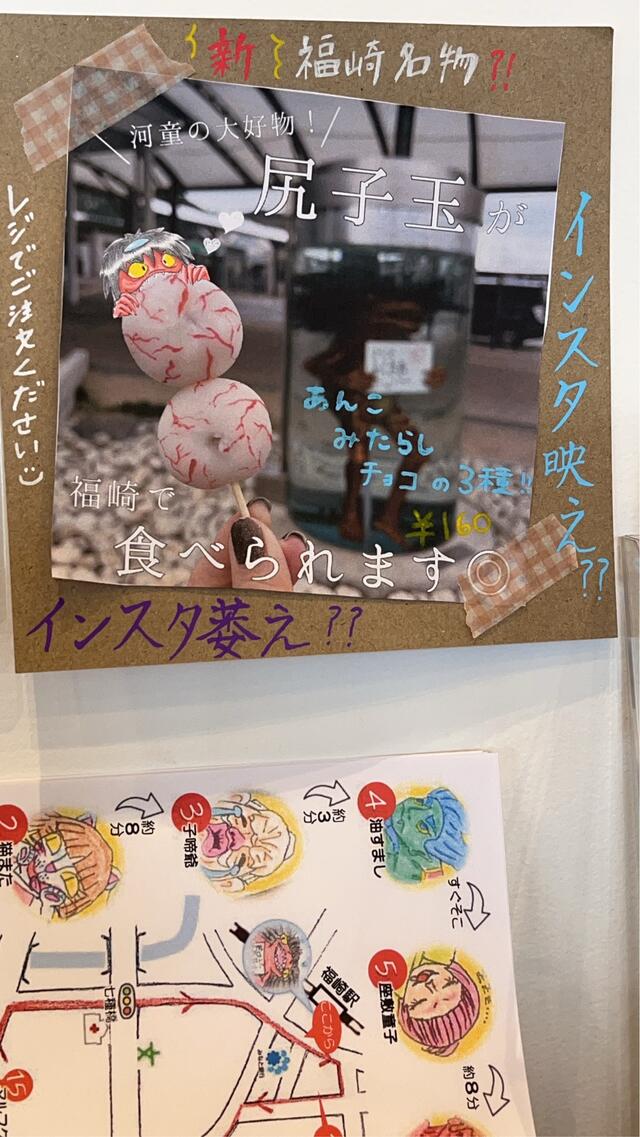 新 福崎名物?!
河童の大好物!
尻子玉が
レジでご注文ください
インスタ映え??
あんこ
みたらし
チョコの3種!!
¥160
福崎で
食べられます◎
インスタ萎え??
2 猫また
約8分
3 子啼爺
約3分
4 油すまし
すぐそこ
5 座敷童子
約8分
福崎駅
ここから
七種橋
みなと銀行
15